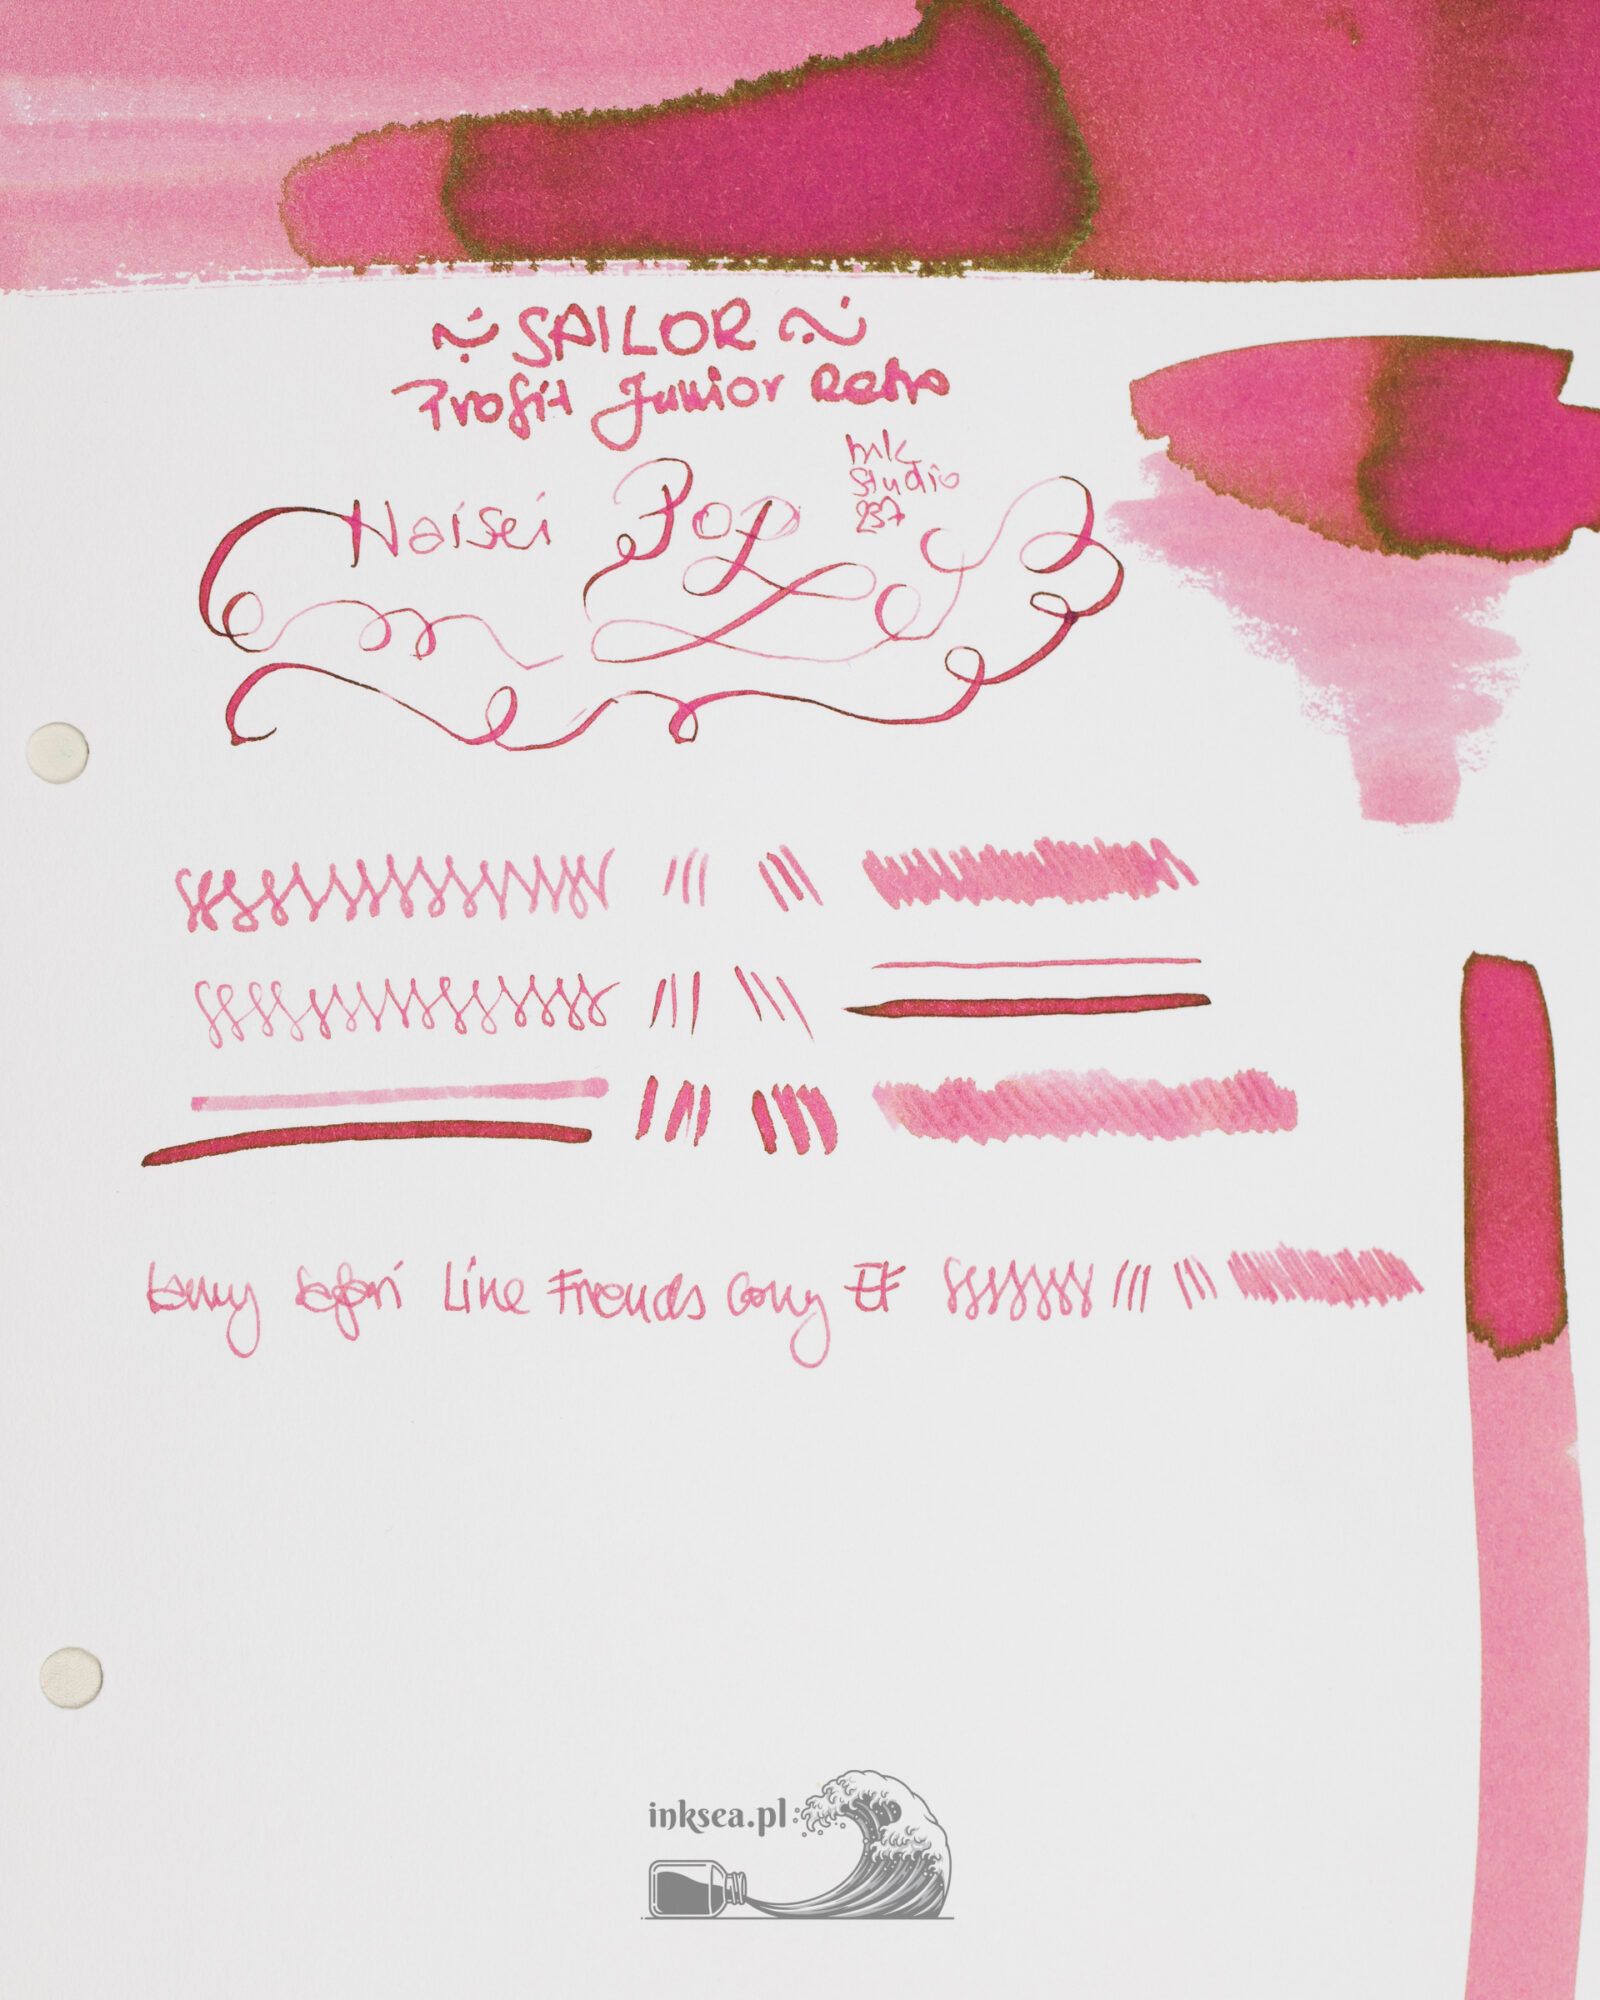 ~ SAILOR ~
Profit Junior Retro
Haisei Pop
Ink
Studio
237
Lamy Safari Line Friends Cony EF
inksea.pl